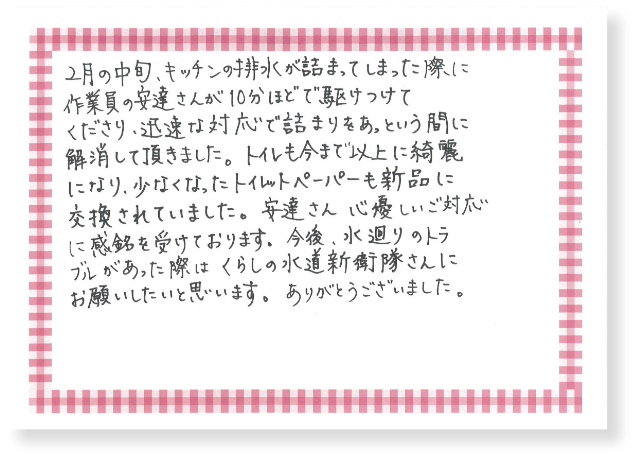 2月の中旬、キッチンの排水が詰まってしまった際に
作業員の安達さんが10分ほどで駆けつけて
くださり、迅速な対応で詰まりをあっという間に
解消して頂きました。トイレも今まで以上に綺麗
になり、少なくなったトイレットペーパーも新品に
交換されていました。安達さん 心優しいご対応
に感銘を受けております。今後、水廻りのトラ
ブルがあった際は くらしの水道新衛隊さんに
お願いしたいと思います。ありがとうございました。